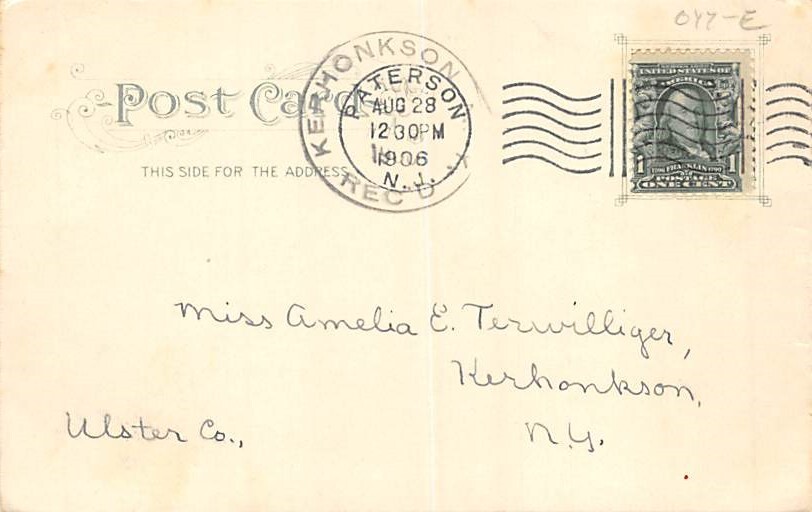 047-E
POST CARD
THIS SIDE FOR THE ADDRESS
KERHONKSON
REC'D
PATERSON
AUG 28
12 30 PM
1906
N.J.
UNITED STATES OF
AMERICA
FRANKLIN
1 1
POSTAGE
ONE CENT
Miss Amelia E. Terwilliger,
Kerhonkson,
Ulster Co., N.Y.